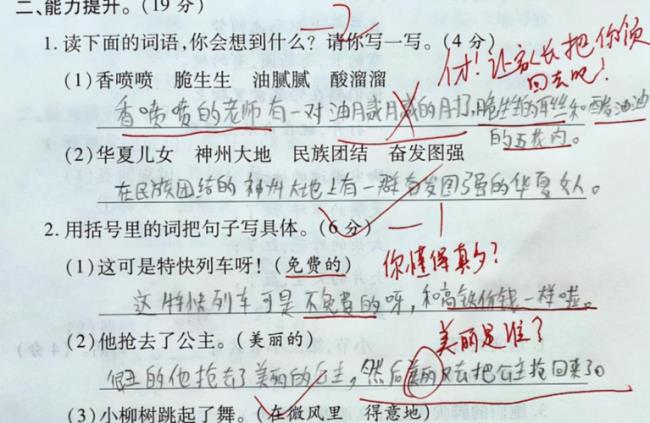 二、能力提升。(19分)
一2
1.读下面的词语,你会想到什么?请你写一写。(4分)
人才!让家长把你领回去吧!
(1)香喷喷 脆生生 油腻腻 酸溜溜
香喷喷的老师有一对油腻腻的
和酸溜溜
的五花肉。
(2)华夏儿女 神州大地 民族团结 奋发图强
在民族团结的神州大地上有一群奋发图强的华夏女人。
2.用括号里的词把句子写具体。(6分)
一1
(1)这可是特快列车呀!(免费的)
你懂得真多?
这特快列车可是不免费的呀,和高铁价钱一样啦。
(2)他抢去了公主。(美丽的)
美丽是谁?
的他抢去了美丽的公主,然后美丽又去把公主抢回来了。
(3)小柳树跳起了舞。(在微风里 得意地)